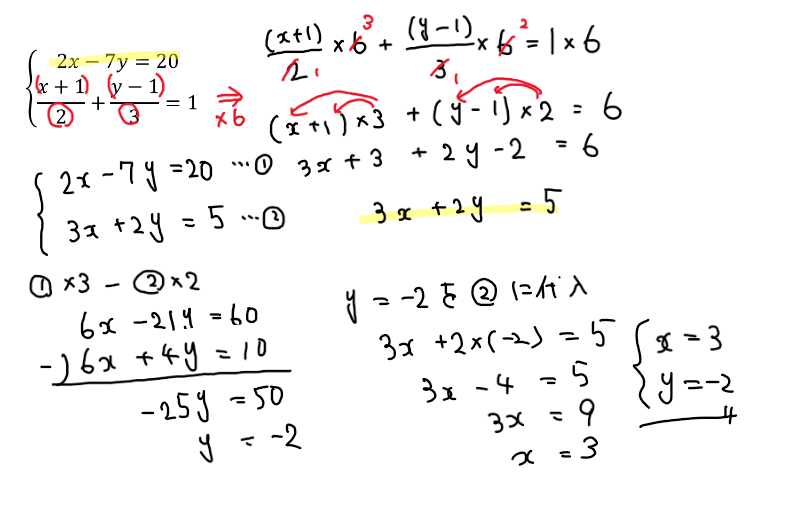 2x − 7y = 20
(x + 1)/2 + (y − 1)/3 = 1
⇒ ×6
(x+1)/2 × 6 3 + (y−1)/3 × 6 2 = 1 × 6
1 1
(x+1)×3 + (y−1)×2 = 6
3x + 3 + 2y − 2 = 6
3x + 2y = 5
2x − 7y = 20 … ①
3x + 2y = 5 … ②
① ×3 − ② ×2
6x − 21y = 60
−) 6x + 4y = 10
−25y = 50
y = −2
y = −2 を ② に代入
3x + 2×(−2) = 5
3x − 4 = 5
3x = 9
x = 3
x = 3
y = −2